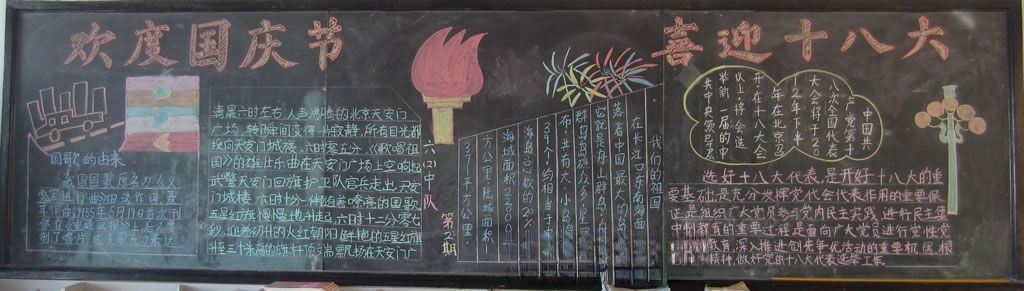 欢度国庆节
喜迎十八大
国歌的由来
我国国歌原名为《义
勇军进行曲》田汉作词,聂
耳作曲,1935年5月19日首次刊
清晨六时左右,人声沸腾的北京天安门
广场,转瞬间变得一片寂静,所有目光都
投向天安门城楼。六时零五分,《歌唱祖
国》的雄壮乐曲在天安门广场上空响起,
武警天安门国旗护卫队官兵走出天安
门城楼,六时十分,伴随着嘹亮的国歌,
五星红旗慢慢地升起,六时十二分零七
秒,迎着初升的火红朝阳,鲜艳的五星红旗
在三十米高的旗杆顶端
六(2)中队
第2期
我们的祖国
在长江口东南海面
落着中国最大的岛
它就是舟山群岛
群岛岛礁众多,星
布,共有大、小岛
39个,约相当于
海岛总数的20%
海域面积22000
方公里,陆域面积
1371平方公里
中国共
产党第十
八次全国代表
大会将于20
12年下半
年在北京召
开。在十八大会
议上将会选
举新一届的中
共中央领导
选好十八大代表,是开好十八大的重
要基础,是充分发挥党代会代表作用的重要保
证,是组织广大党员参与党内民主实践、进行民主集
中制教育的重要过程,是面向广大党员进行党性党
教育、深入推进创先争优活动的重要机
精神,做好党的十八大代表选举工作。